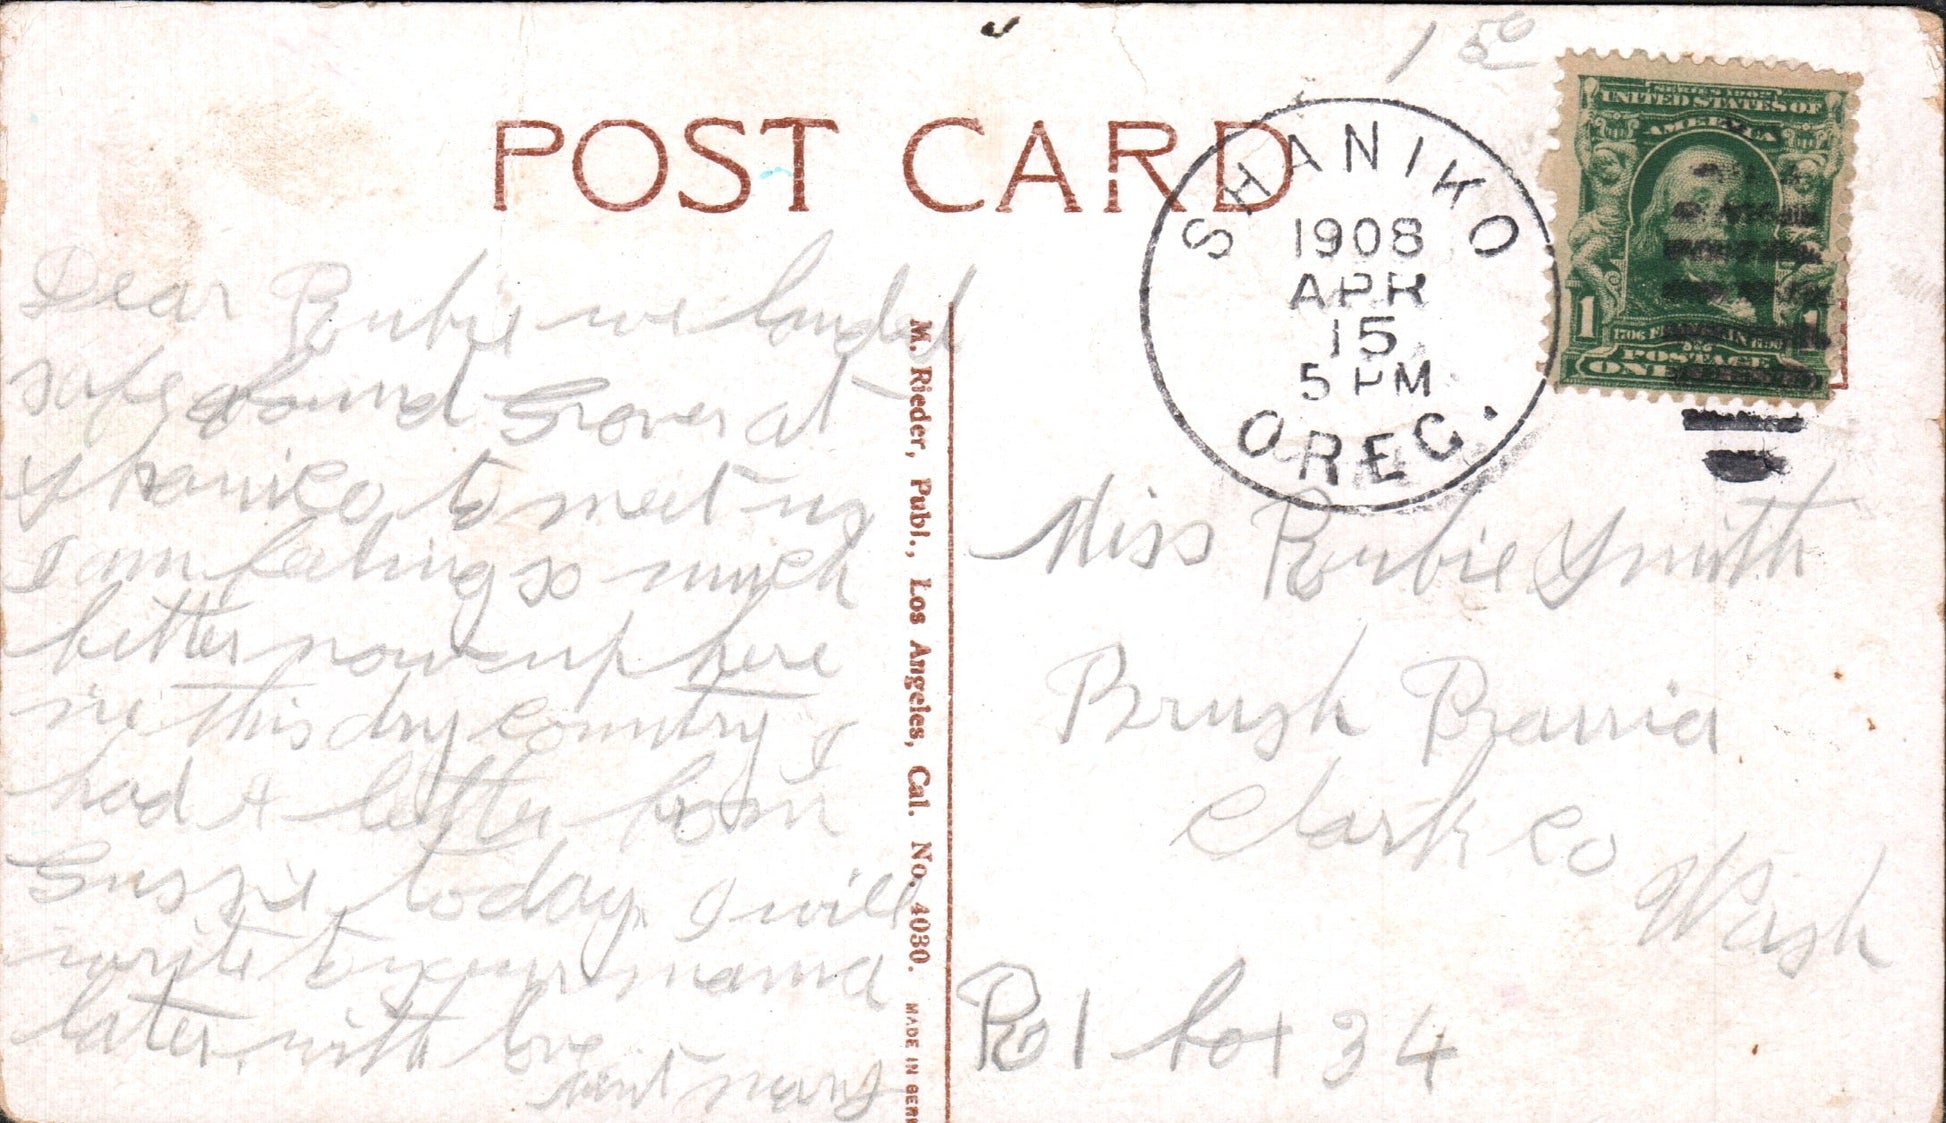 1 50
POST CARD
SHANIKO
1908
APR
15
5 PM
OREG.
SERIES 1902
UNITED STATES OF
AMERICA
1 1
1706 FRANKLIN 1790
POSTAGE
ONE
Dear Rubie we landed
safe found Grover at
Shaniko to meet us
I am feeling so much
better now up here
in this dry country I
had a letter from
Gussie today I will
write to your mama
later with love
aunt
M. Rieder, Publ., Los Angeles, Cal. No. 4030. MADE IN GERM
Miss Rubie Smith
Brush Prairia
Clark Co
Wash
R 1 box 34